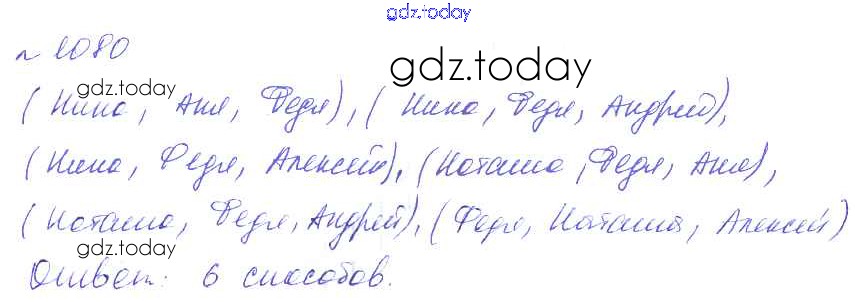 gdz.today
№1080
gdz.today
gdz.today
(Нина, Аня, Федя), (Нина, Федя, Андрей),
(Нина, Федя, Алексей), (Наташа, Федя, Аня),
(Наташа, Федя, Андрей), (Федя, Наташа, Алексей)
gdz.today
Ответ: 6 способов.